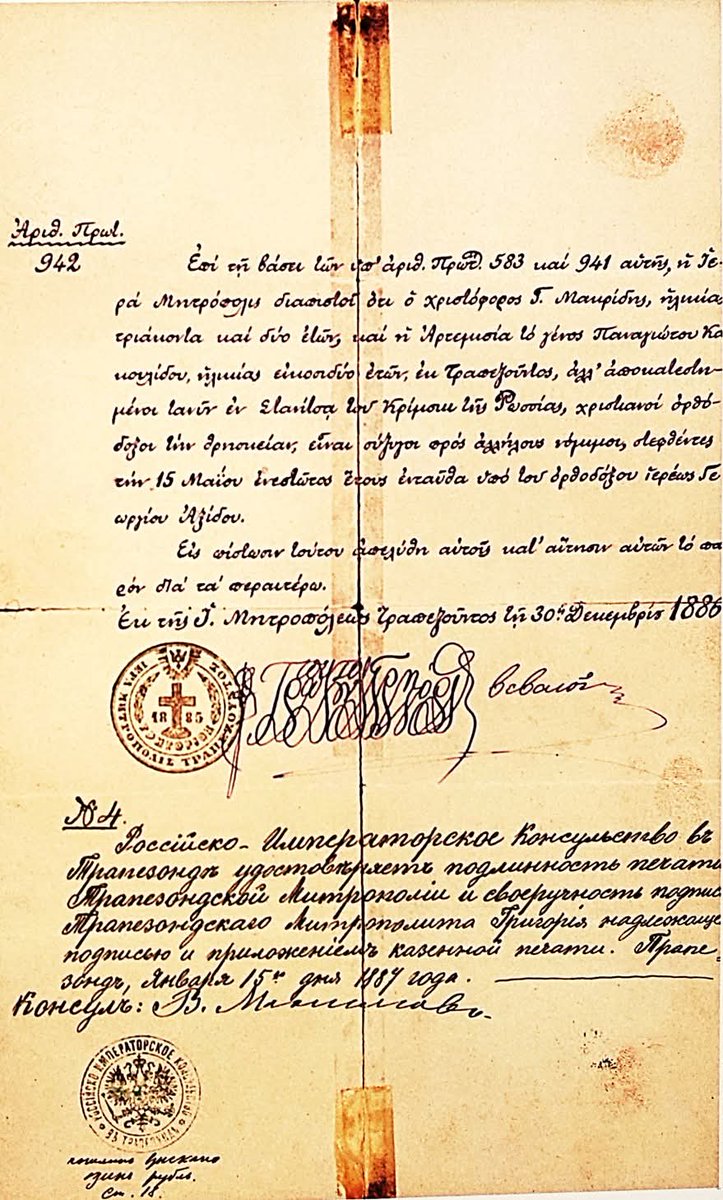 Ἀριθ. Πρωτ.
942
Ἐπί τῇ βάσει τῶν ὑπ' ἀριθ. Πρωτ. 583 καί 941 αὐτῆς, ἡ Ἱε-
ρά Μητρόπολις διαπιστοῖ ὅτι ὁ χριστόφορος Γ. Μαυρίδης, ἡλικίας
τριάκοντα καί δύο ἐτῶν, καί ἡ Ἀρτεμισία τό γένος Παναγιώτου Κα
κουλίδου, ἡλικίας εἰκοσιδύο ἐτῶν, ἐκ Τραπεζοῦντος, ἀλλ' ἀποκατεστη-
μένοι τανῦν ἐν Στανίτσᾳ τοῦ Κρίμσκι τῆς Ῥωσίας, χριστιανοί ὀρθό-
δοξοι τήν θρησκείαν, εἶναι σύζυγοι πρός ἀλλήλους νόμιμοι, στεφθέντες
τήν 15 Μαΐου ἐνεστῶτος ἔτους ἐνταῦθα ὑπό τοῦ ὀρθοδόξου ἱερέως Γε
ωργίου Ἀξίδου.
Εἰς πίστωσιν τούτου ἀπελύθη αὐτοῖς κατ' αἴτησιν αὐτῶν τό πα
ρόν διά τά περαιτέρω.
Ἐκ τῆς Ἱ. Μητροπόλεως Τραπεζοῦντος τῇ 30ῃ Δεκεμβρίου 1886
ΙΕΡΑ ΜΗΤΡΟΠΟΛΙΣ ΤΡΑΠΕΖΟΥΝΤΟΣ
1885
βεβαιοῖ
№4.
Россійско-Императорское Консульство въ
Трапезондѣ удостовѣряетъ подлинность печати
Трапезондской Митрополіи и своеручность подпис
Трапезондскаго Митрополита Григорія надлежаще
подписью и приложеніемъ казенной печати. Трапе-
зондъ, Января 15го дня 1887 года.
Консулъ: В.
РОССІЙСКО ИМПЕРАТОРСКОЕ КОНСУЛЬСТВО
ВЪ ТРАПЕЗУНДѢ
одинъ рубль.
Ст. 18.